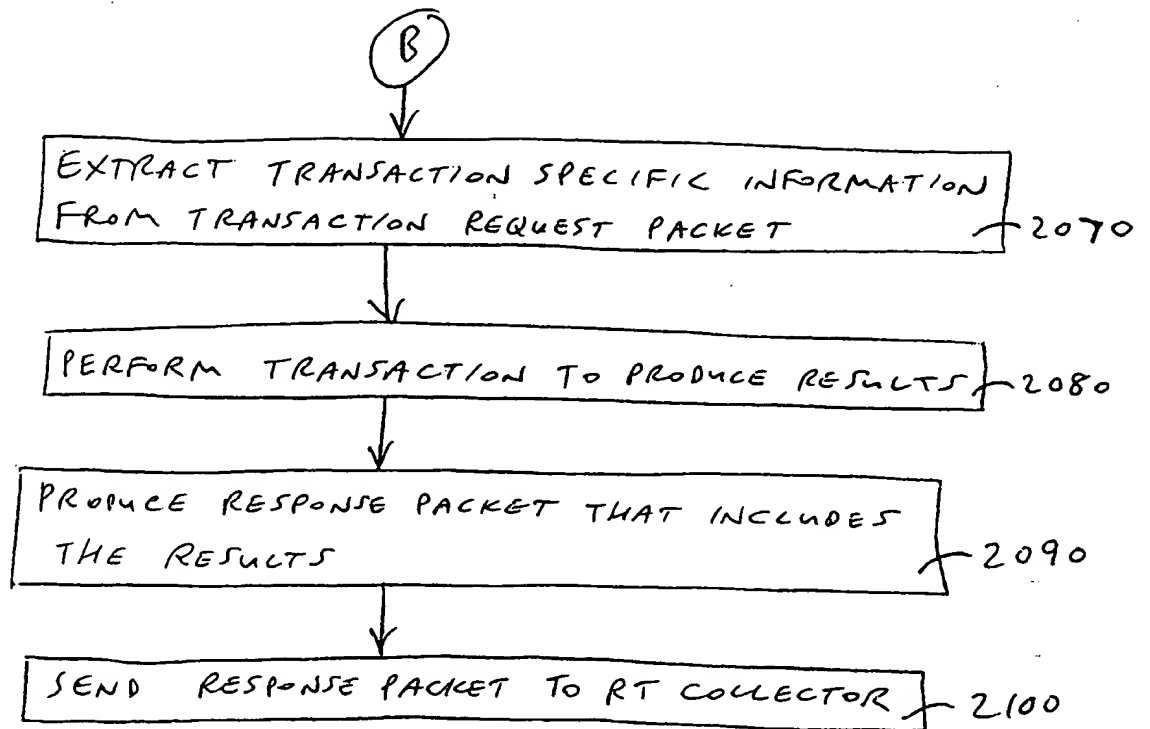 B
EXTRACT TRANSACTION SPECIFIC INFORMATION
FROM TRANSACTION REQUEST PACKET
2070
PERFORM TRANSACTION TO PRODUCE RESULTS
2080
PRODUCE RESPONSE PACKET THAT INCLUDES
THE RESULTS
2090
SEND RESPONSE PACKET TO RT COLLECTOR
2100